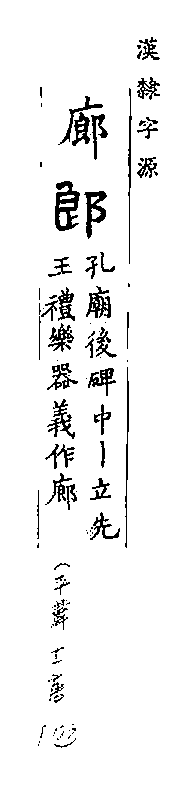 漢隸字源
廊郎
孔廟後碑中丨立先
王禮樂器義作廊